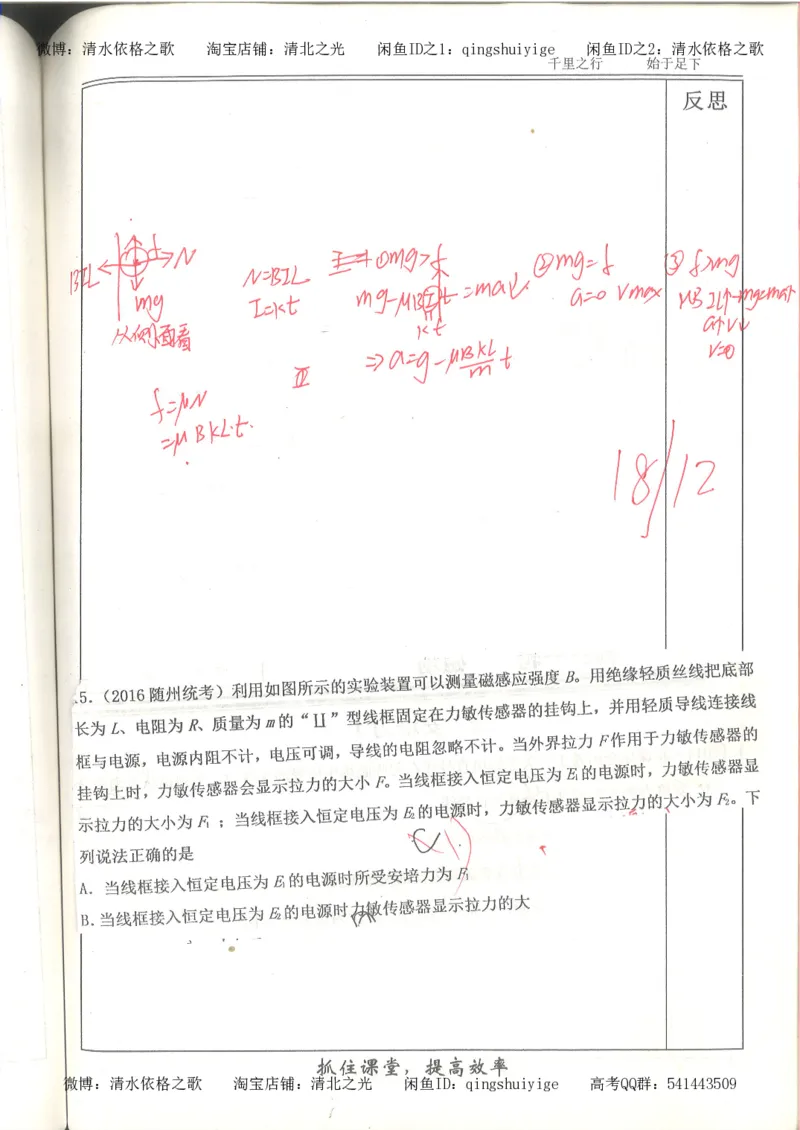 微博：清水依格之歌 淘宝店铺：清北之光 闲鱼ID之1：qingshuiyige 闲鱼ID之2：清水依格之歌
千里之行 始于足下
反思
BIL f N
mg
从侧面看
N=BIL
I=kt
①mg>f
mg-μBIL=ma↓
kt
⇒a=g-μBkL/m t
②mg=f
a=0 vmax
③f>mg
μBIL↑-mg=ma↑
a↑v↓
v=0
f=μN
=μBkL·t.
18/12
5.（2016 随州统考）利用如图所示的实验装置可以测量磁感应强度 B。用绝缘轻质丝线把底部
长为 L、电阻为 R、质量为 m 的“凵”型线框固定在力敏传感器的挂钩上，并用轻质导线连接线
框与电源，电源内阻不计，电压可调，导线的电阻忽略不计。当外界拉力 F 作用于力敏传感器的
挂钩上时，力敏传感器会显示拉力的大小 F。当线框接入恒定电压为 E₁ 的电源时，力敏传感器显
示拉力的大小为 F₁ ；当线框接入恒定电压为 E₂ 的电源时，力敏传感器显示拉力的大小为 F₂。下
列说法正确的是
A. 当线框接入恒定电压为 E₁ 的电源时所受安培力为 F₁
B. 当线框接入恒定电压为 E₂ 的电源时力敏传感器显示拉力的大
抓住课堂，提高效率
微博：清水依格之歌 淘宝店铺：清北之光 闲鱼ID：qingshuiyige 高考QQ群：541443509